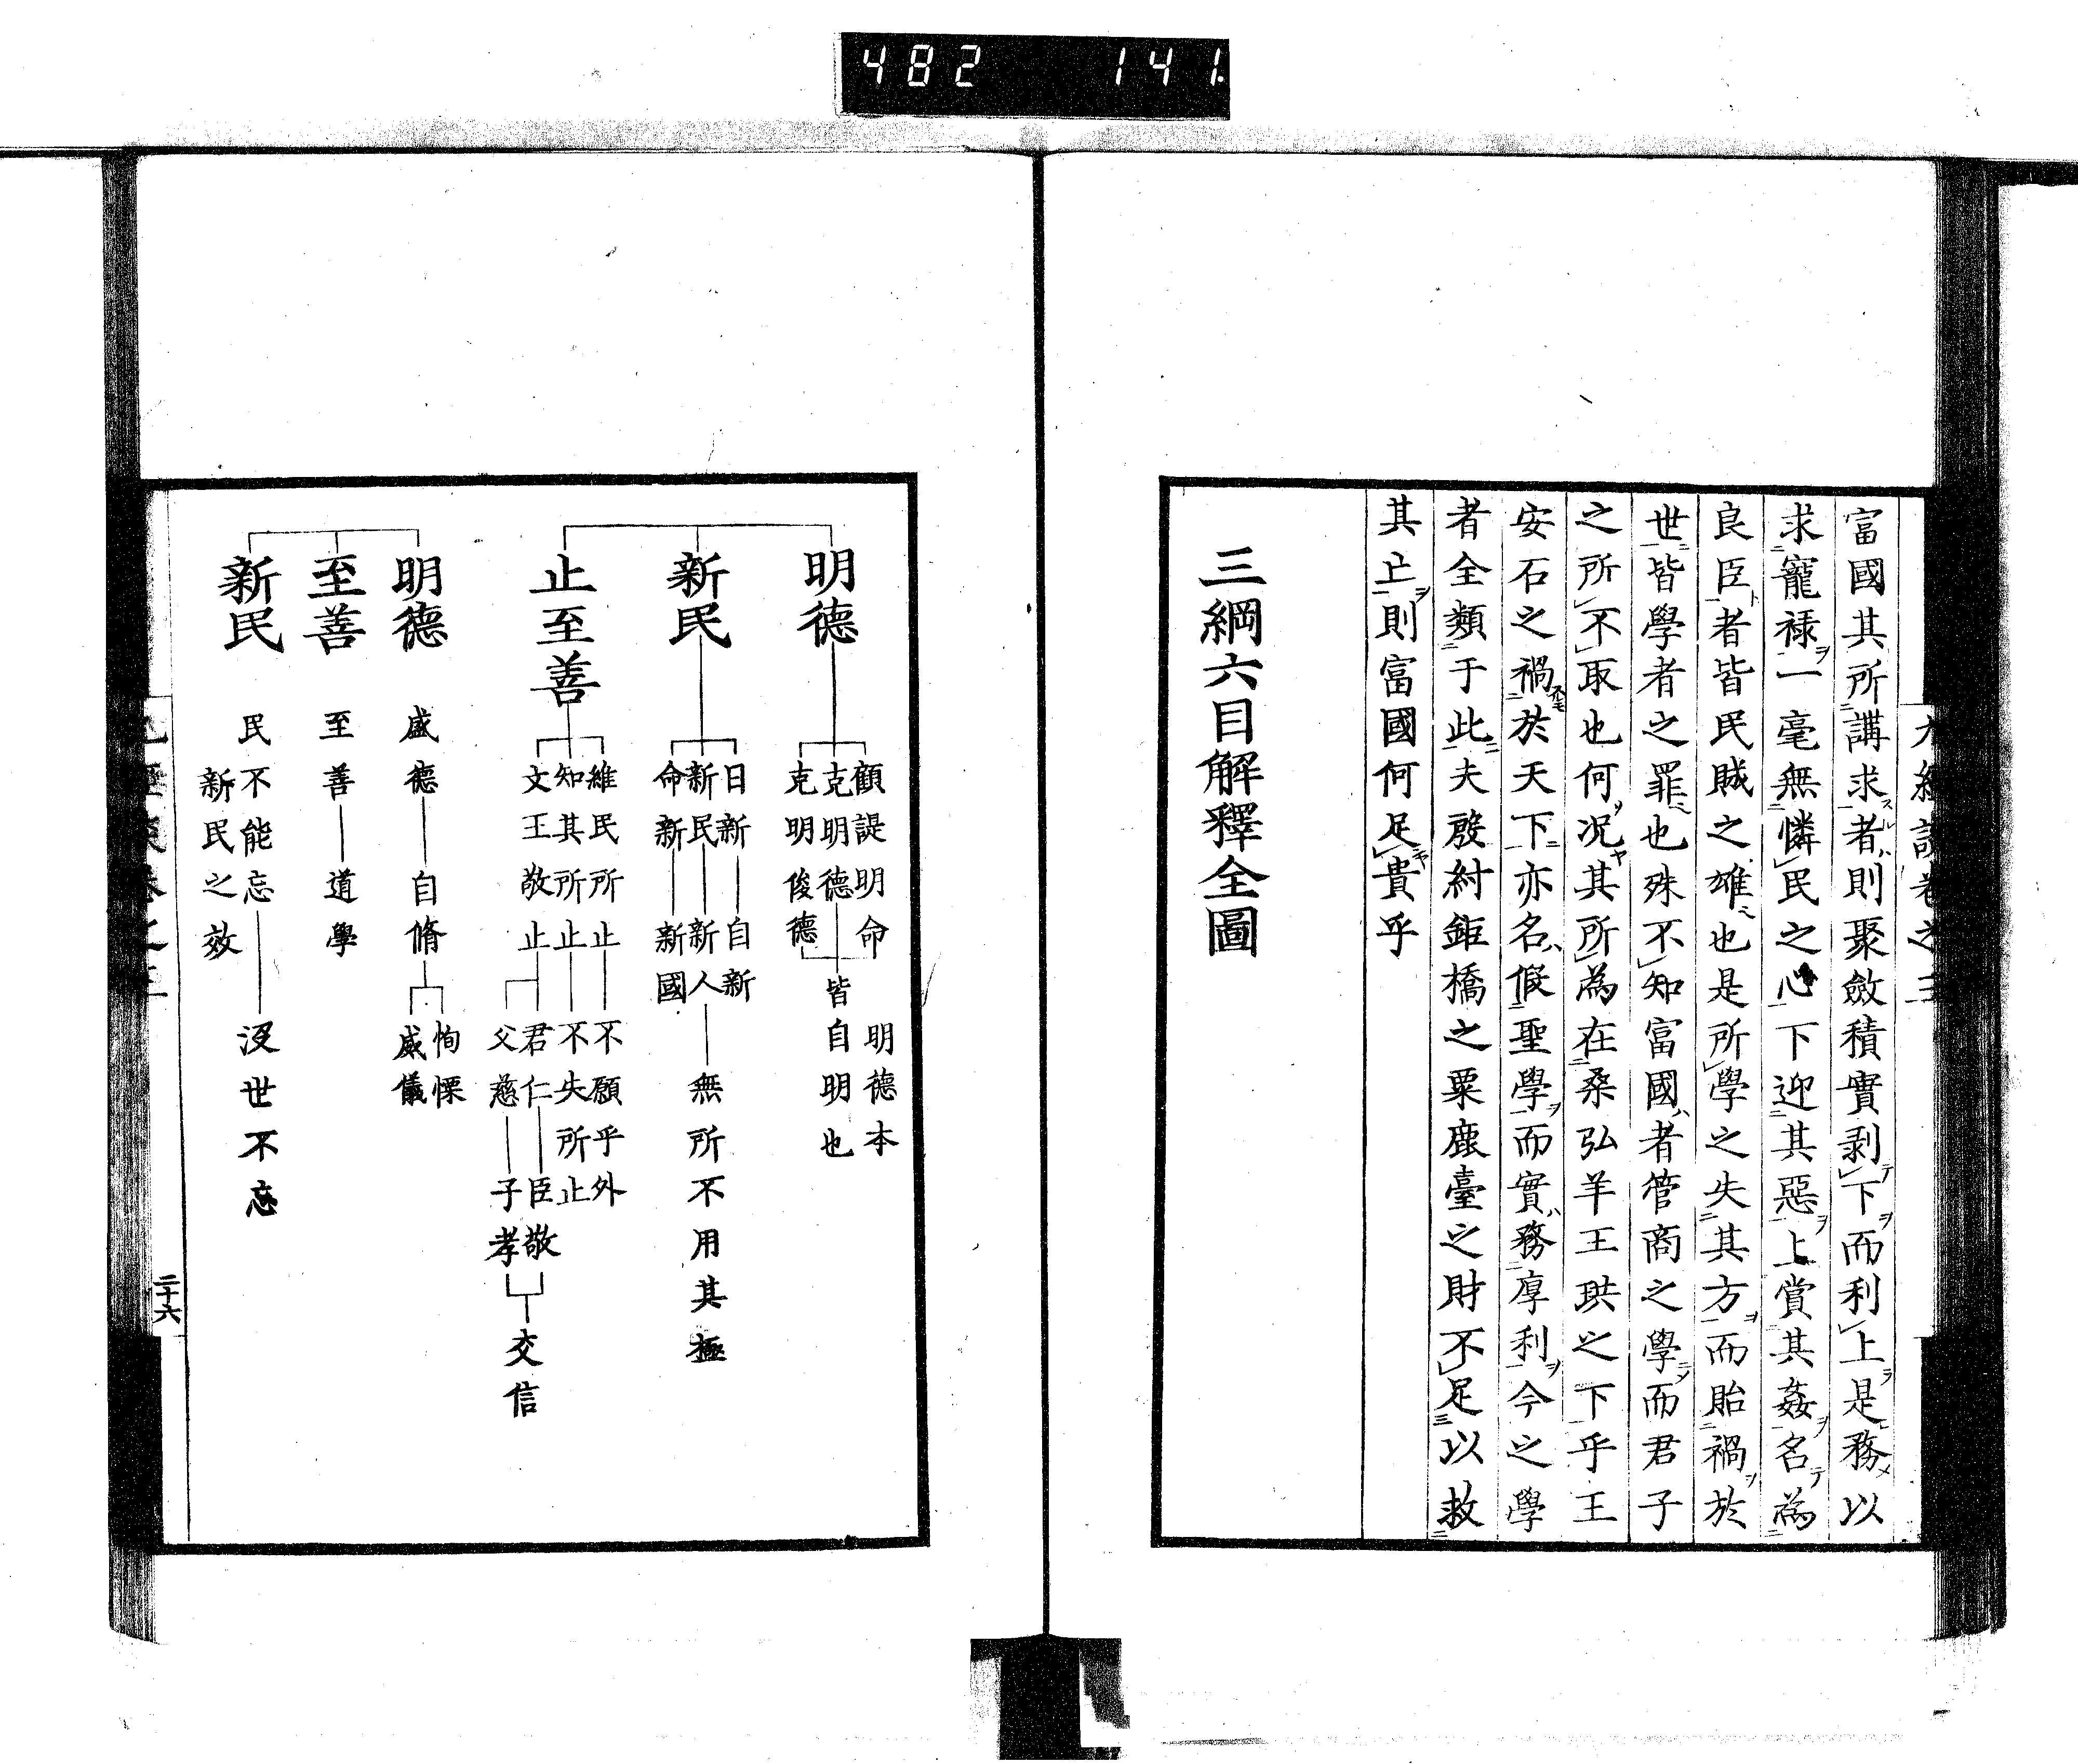 482 141.
富國其所講求者則聚斂積實剥下而利上是務以
求寵祿一毫無憐民之心下迎其惡上賞其姦名為
良臣者皆民賊之雄也是所學之失其方而貽禍於
世皆學者之罪也殊不知富國者管商之學而君子
之所不取也何况其所為在桑弘羊王珙之下乎王
安石之禍於天下亦名假聖學而實務厚利今之學
者全類于此夫殷紂鉅橋之粟鹿臺之財不足以救
其亡則富國何足貴乎
三綱六目解釋全圖
明德
顧諟明命
克明德
克明俊德
皆自明也
明德本
新民
日新 自新
新民 新人
命新 新國
無所不用其極
止至善
維民所止 不願乎外
知其所止 不失所止
文王敬止
君仁 臣敬
父慈 子孝
交信
明德
盛德 自脩
恂慄
威儀
至善
至善 道學
新民
民不能忘 沒世不忘
新民之效
二十六